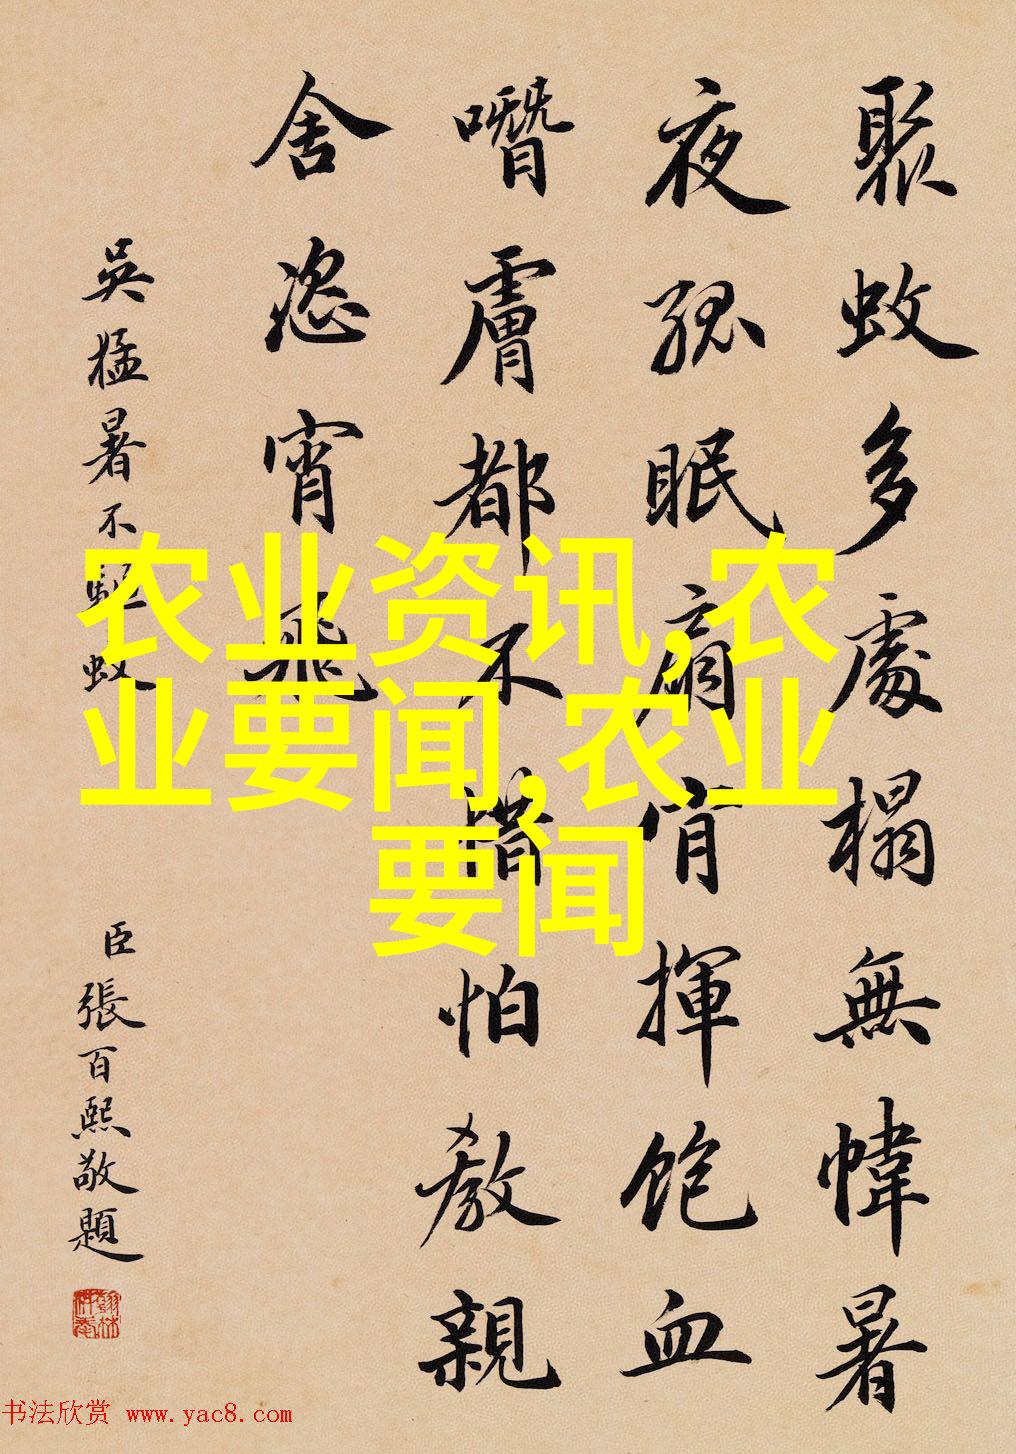 聚蚊多處榻無幃暑
夜孤眠扇肯揮飽血
噆膚都不惜怕教親
舍恣宵飛
吳猛暑不驅蚊
臣張百熙敬題
农业资讯,农
业要闻,农业
要闻
书法欣赏 www.yac8.com